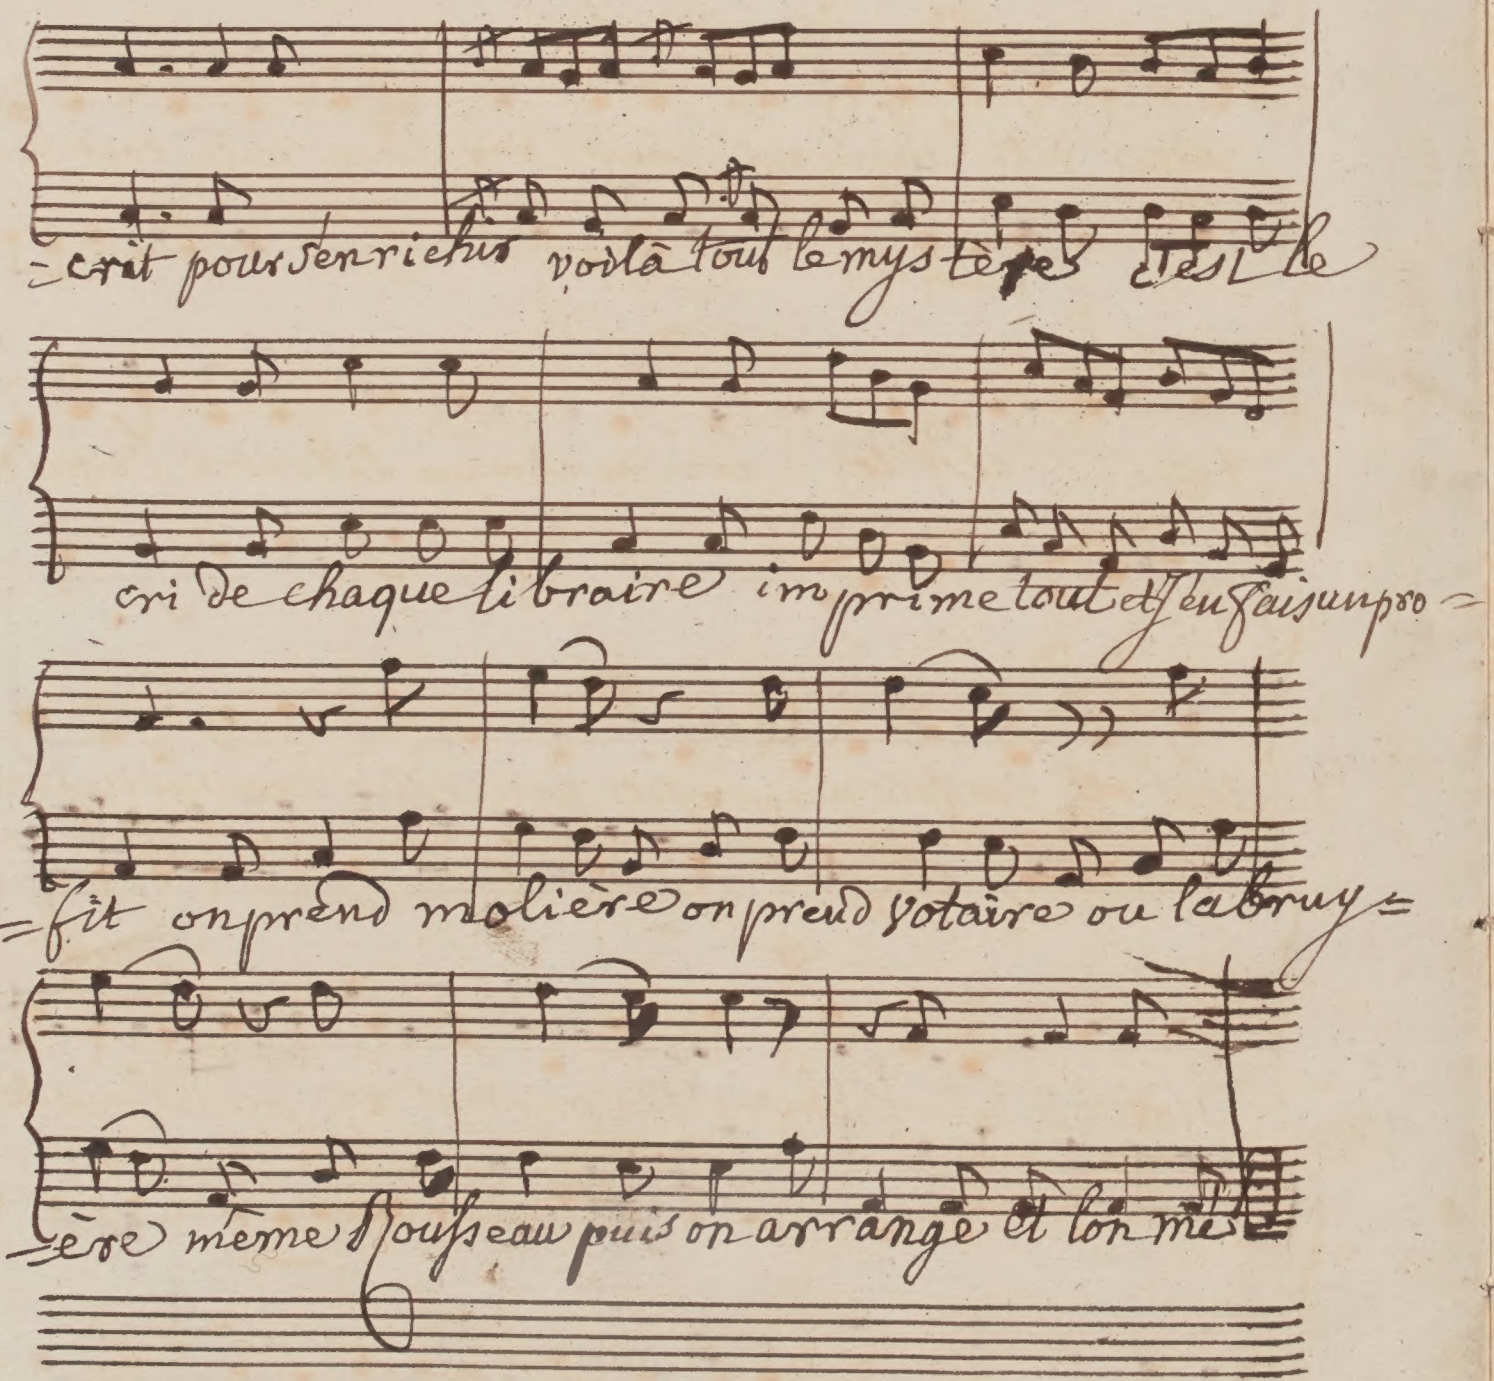 =crit pour s'enrichir voilà tout le mystère c'est le
cri de chaque libraire imprime tout et j'en fais un pro=
=fit on prend molière on prend votaire ou la bruy=
=ère même Rousseau puis on arrange et lon mé